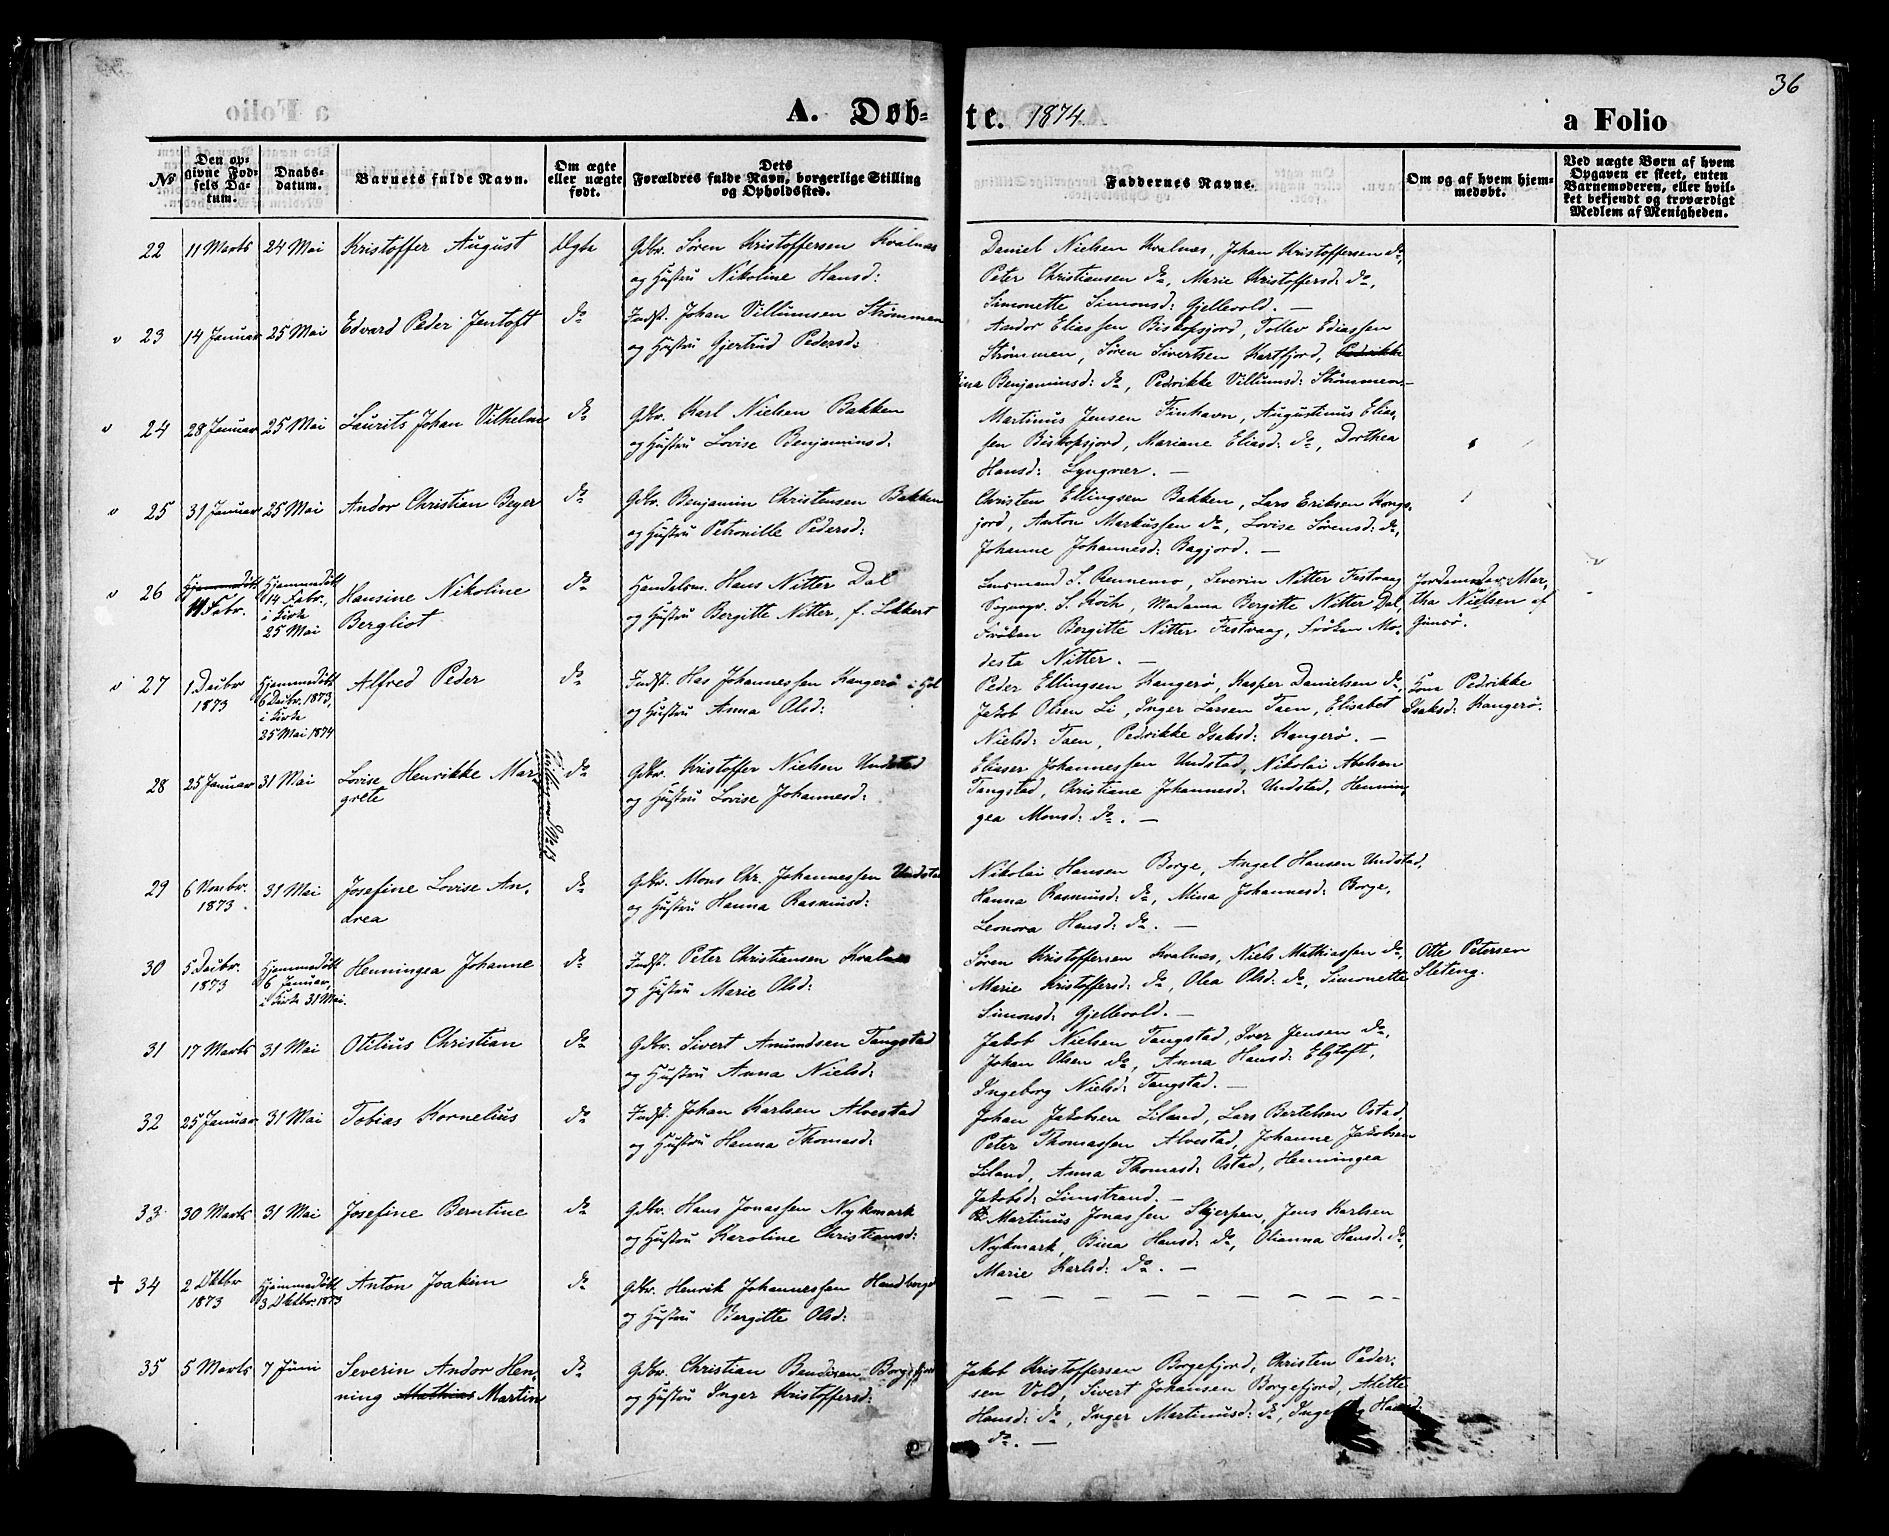 36
A. Døb-
te. 1874
a Folio
№
Den op-
givne Fød-
sels Da-
tum.
Daabs-
datum.
Barnets fulde Navn.
Om ægte
eller uægte
født.
Dets
Forældres fulde Navn, borgerlige Stilling
og Opholdssted.
Faddernes Navne.
Om og af hvem hjem-
medøbt.
Ved uægte Børn af hvem
Opgaven er skeet, enten
Barnemoderen, eller hvil-
ket bekjendt og troværdigt
Medlem af Menigheden.
22 11 Marts 24 Mai Kristoffer August Ægte Gdbr. Søren Kristoffersen Kvalnæs
og Hustru Nikoline Hansd:
Daniel Nielsen Kvalnæs, Johan Kristoffersen do,
Peter Christiansen do, Marie Kristoffersd: do,
Simonette Simonsd: Gjellevold. —
23 14 Januar 25 Mai Edvard Peder Jentoft do Indst. Johan Villumsen Strømmen
og Hustru Gjertrud Pedersd:
Andor Eliassen Bispfjord, Tollev Ediassen
Strømmen, Søren Sivertsen Kartfjord, Pedrikke
Bina Benjaminsd: do, Pedrikke Villumsd: Strømmen—
24 28 Januar 25 Mai Laurits Johan Vilhelm do Gdbr. Karl Nielsen Bakken
og Hustru Lovise Benjaminsd:
Martinus Jensen Finhavn, Augustinus Elias-
sen Bispfjord, Mariane Eliasd: do, Dorthea
Hansd: Lyngvær. —
25 31 Januar 25 Mai Andor Christian Beyer do Gdbr. Benjamin Christensen Bakken
og Hustru Petronille Pedersd:
Christen Ellingsen Bakken, Lars Eriksen Kongs-
jord, Anton Markussen do, Lovise Sørensd: do,
Johanne Johannesd: Bagjord. —
26 Hjemmedøbt
11 Febr.
Hjemmedøbt
14 Febr.,
i Kirke
25 Mai
Hansine Nikoline
Bergliot
do Handelsm. Hans Nitter Dal
og Hustru Bergitte Nitter, f. Lokkert
Lensmand S. Rennemo, Severin Nitter Festvaag
Sognepr. S. Koch, Madama Bergitte Nitter Dal,
Frøken Bergitte Nitter Festvaag, Frøken Mo-
desta Nitter. —
Jordemoder Mar-
tha Nielsen af
Gimsø.
27 1 Decbr
1873
Hjemmedøbt
6 Decbr. 1873,
i Kirke
25 Mai 1874
Alfred Peder do Indst. Has Johannessen Kangerø i Hol
og Hustru Anna Olsd:
Peder Ellingsen Kangerø, Kasper Danielsen do,
Jakob Olsen Li, Inger Larsen Taen, Elisabet
Nielsd: Taen, Pedrikke Isaksd: Kangerø. —
Kone Pedrikke
Isaksd: Kangerø.
28 25 Januar 31 Mai Lovise Henrikke Mar-
grete
do Gdbr. Kristoffer Nielsen Undstad
og Hustru Lovise Johannesd:
Eliaser Johannessen Undstad, Nikolai Abelsen
Tangstad, Christiane Johannesd: Undstad, Hennin-
gea Monsd: do. —
29 6 Novbr.
1873
31 Mai Josefine Lovise An-
drea
do Gdbr. Mons Chr. Johannessen Undstad
og Hustru Hanna Rasmusd:
Nikolai Hansen Borge, Angel Hansen Undstad,
Hanna Rasmusd: do, Mina Johannesd: Borge,
Leonora Hansd: do. —
30 5 Decbr.
1873
Hjemmedøbt
6 Januar,
i Kirke 31 Mai.
Henningea Johanne do Indst. Peter Christiansen Kvalnæs
og Hustru Marie Olsd:
Søren Kristoffersen Kvalnæs, Niels Mathiassen do,
Marie Kristoffersd: do, Olea Olsd: do, Simonette
Simonsd: Gjellevold. —
Otte Petersen
Sleteng.
31 17 Marts 31 Mai Otilius Christian do Gdbr. Sivert Amundsen Tangstad
og Hustru Anna Nielsd:
Jakob Nielsen Tangstad, Iver Jensen do,
Johan Olsen do, Anna Hansd: Elgtoft,
Ingeborg Nielsd: Tangstad. —
32 25 Januar 31 Mai Tobias Kornelius do Indst. Johan Karlsen Alvestad
og Hustru Hanna Thomasd:
Johan Jakobsen Liland, Lars Bertelsen Ostad,
Peter Thomassen Alvestad, Johanne Jakobsen
Liland, Anna Thomasd: Ostad, Henningea
Jakobsd: Limstrand. —
33 30 Marts 31 Mai Josefine Berntine do Gdbr. Hans Jonassen Nykmark
og Hustru Karoline Christiansd:
Martinus Jonassen Skjerpen, Jens Karlsen
Nykmark, Bina Hansd: do, Olianna Hansd: do,
Marie Karlsd: do. —
✝ 34 2 Oktbr
1873
Hjemmedøbt
3 Oktbr. 1873
Anton Joakim do Gdbr. Henrik Johannessen Handberget
og Hustru Bergitte Olsd:
— — — — — — — — — — —
35 5 Marts 7 Juni Severin Andor Hen-
ning Mathias Martin
do Gdbr. Christian Bendixen Borgefjord
og Hustru Inger Kristoffersd:
Jakob Kristoffersen Borgefjord, Christen Peder-
sen Vold, Sivert Johansen Borgefjord, Alette
Hansd: do, Inger Martinusd: do, Ingeborg Hansd:
do. —